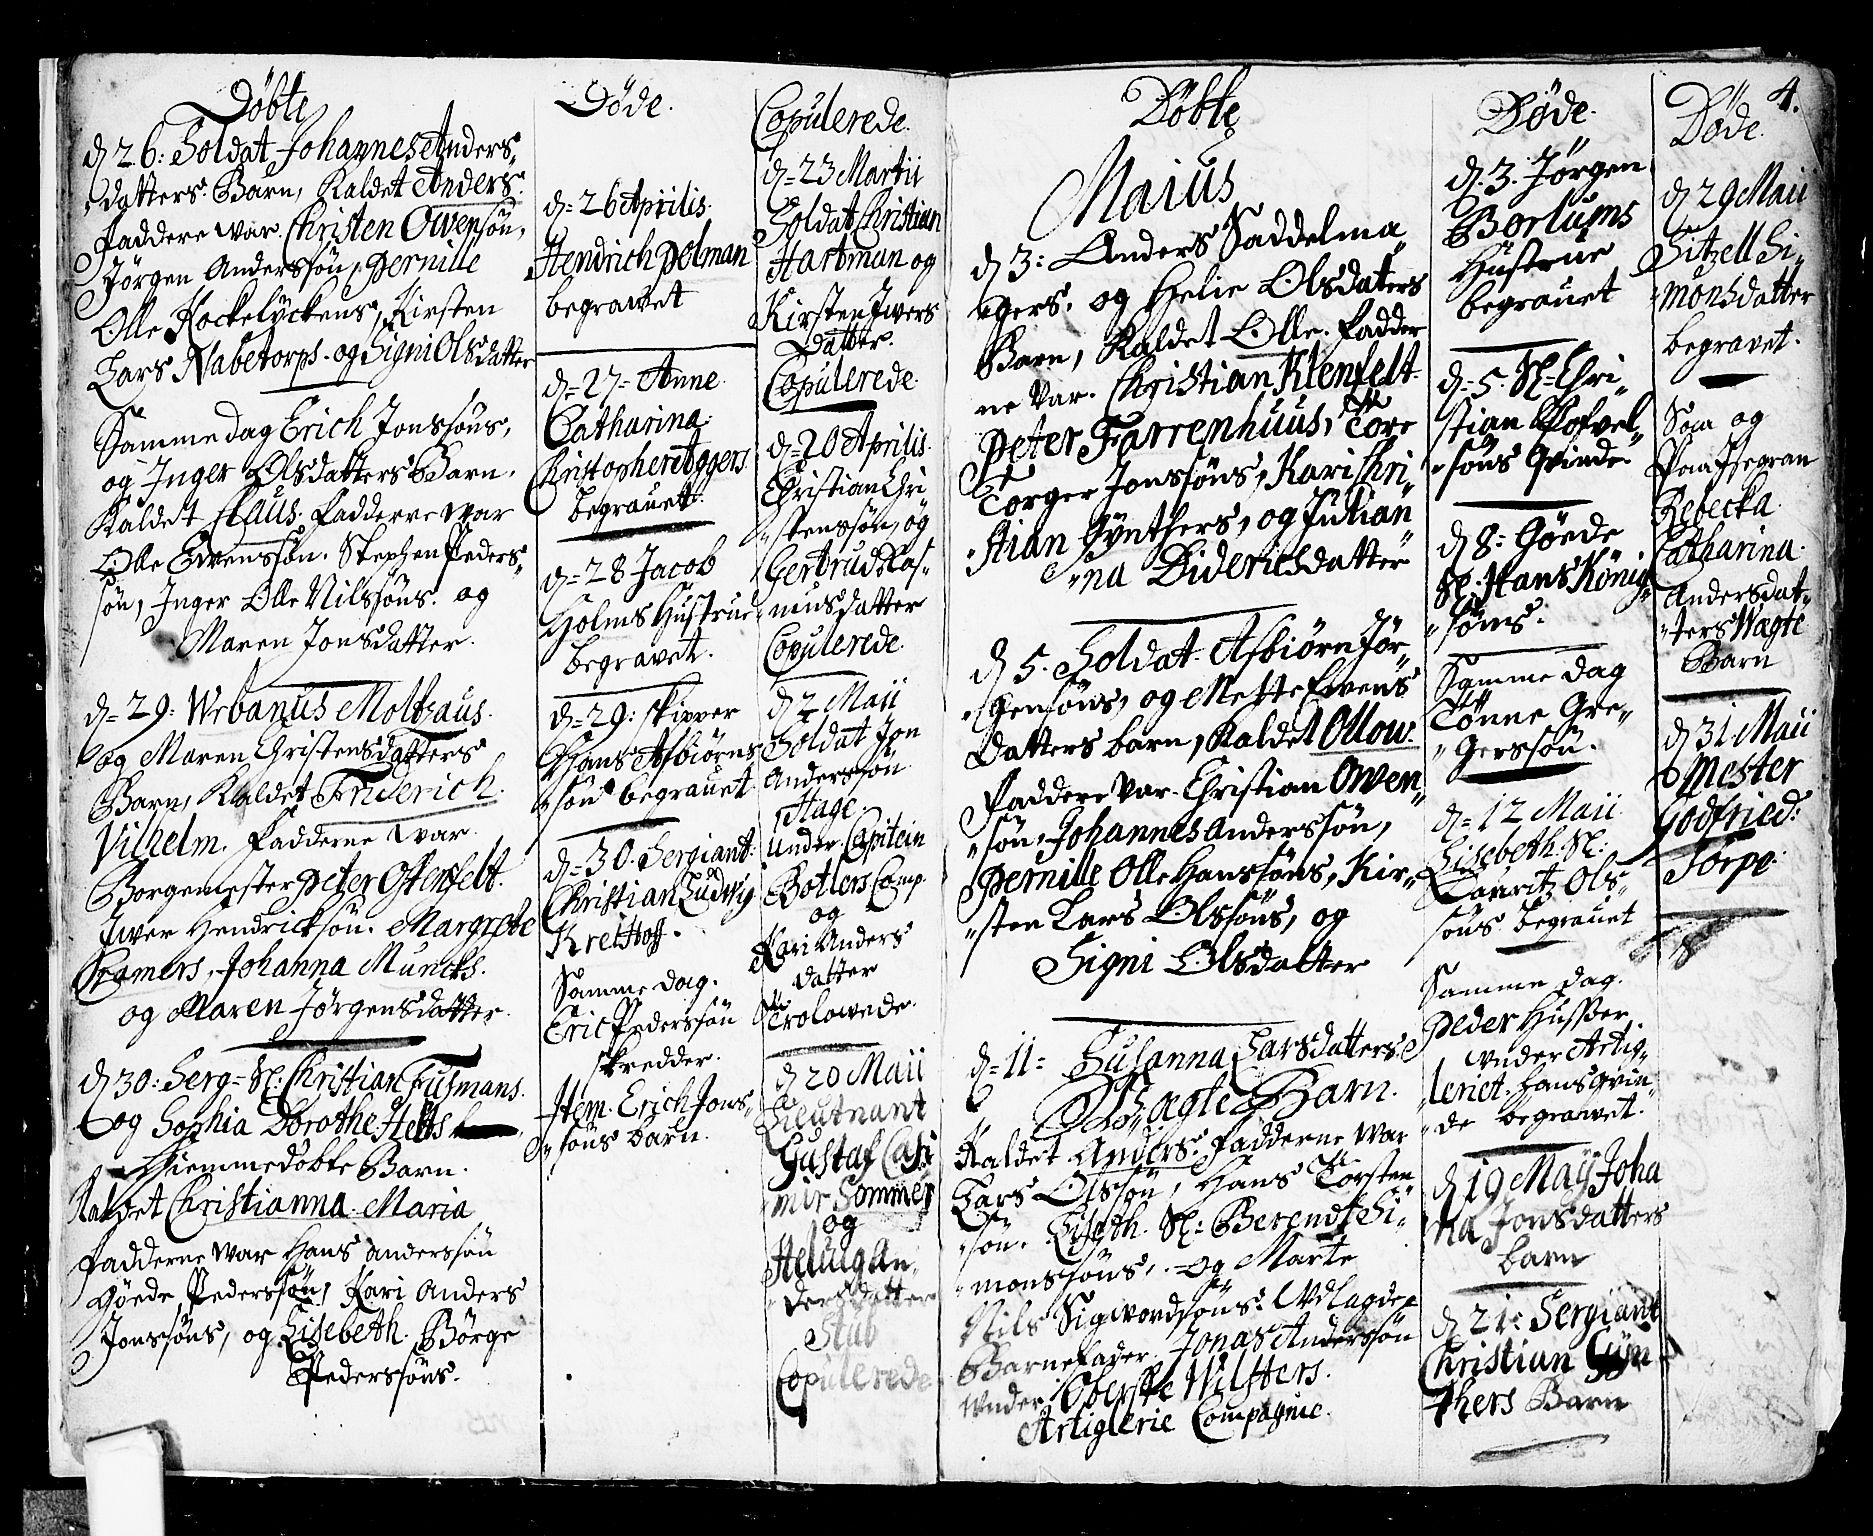 Döbte
d 26: Soldat Johannes Anders,
datters Barn, Kaldet Anders.
Faddere war Christen Owensön,
Jörgen Anderssön, Pernille
Olle Kockelyckens, Kirsten
Lars Nabetorps og Signi Olsdatter
Samme dag Erich Jonssöns,
og Inger Olsdatters Barn.
Kaldet Claus. Fadderne war
Olle Swenssön. Stephen Peders,,
sön, Inger Olle Nilssöns. og
Maren Jonsdatter.
d=29: Wrbanus Moltzaus.
og Maren Christensdatters
Barn, Kaldet Friderich
Vilhelm. Fadderne war
Borgemester Peter Ostenfelt.
Iwer Hendricksön. Margrete
Cramers, Johanna Muncks.
og Maren Jörgensdatter.
d 30: Serg= Sl: Christian Fusmans.
og Sophia Dorothe Helts
Hiemmedöbte Barn.
Kaldet Christianna Maria
Fadderne war Hans anderssön
Göede Pederssön, Kari Anders
Jonssöns, og Lisebeth Börge
Pederssöns.
Döde.
d=26 Aprilis.
Hendrich Polman
begrawet
d=27= Anne
Catharina
Christopher Eggers
begrauet.
d=28 Jacob
Holms Hustrue
begravet.
d=29: skipper
Hans Asbiörns
sön begrauet
d=30. Sergiant
Christian Ludwig
Krethoff.
Samme dag.
Eric Pederssön
skredder.
Item. Erich Jons,,
söns barn.
Copulerede
d=23 Martii
Soldat Christian
Hartman og
Kirsten Iwers
Datter.
Copulerede
d=20 Aprilis.
Christian Chri,,
,,stenssön og
Gertrud Ras,,
,,musdatter
Copulerede.
d 2 Maii
Soldat Jon
Anderssön
Hage.
under Capitein
Botlers Comp.
og
Kari Anders
datter
Trolowede.
d 20 Maii
Lieutnant
Gustaf Casi
mir Sommer
og
Helwig An,,
dersdatter
Stub
Copulerede
Döbte
Maius
d 3: Anders Saddelma,,
,,gers. og Helie Olsdaters
Barn, Kaldet Olle. Fadder
ne Var. Christian Klenfelt
Peter Farrenhuus, Tore
Torger Jonssöns, Kari Chri,,
,,stian Gynthers, og Julian
,,na Diderichsdatter
d 5. Soldat Asbiörn Jör,,
,,gensöns, og Mette Ewens
Datters barn, Kaldet Ollow.
Faddere Var. Christian Owen,,
,,sön, Johannes Anderssön,
Pernille Olle Hanssöns, Kir,,
,,sten Lars Olssöns, og
Signi Olsdatter
d=11= Susanna Larsdatters
Wagte Barn.
Kaldet Anders. Fadderne war
Lars Olssön, Hans Torsten
,,sön. Lisbeth Sl: Berendt Si,,
,,monssöns, og Marte
Nils Sigwordsöns. Udlagde
Barnefader Jonas Anderssön
under Oberste Wilsters.
Artiglerie Compagnie.
Döde.
d. 3. Jörgen
Borlums
Hustrue
begrauet
d=5. Sl= Chri,,
stian Pofvel,,
,,söns Qvinde
d 8: Göede
Sl: Hans König,,
,,söns.
Samme dag
Tönne Gre,,
,,gerssön.
d=12 Maii
Lisebeth Sl:
Lauritz Ols,,
söns begrauet
Samme dag.
Peder Husser
under Artig,,
leriet. Hans qvin,,
,,de begrawet.
d 19 May Joha
na Jonsdatters
barn
d 21: Sergiant
Christian Gyn
thers Barn
4.
Döde
d 29 Maii
Sitzell Si,,
,,monsdatter
begravet.
Som og
Rebecka
Catharina
Andersdat,,
,,ters Wægte
Barn
d 31 Maii
Mester
Godfried
Torpe